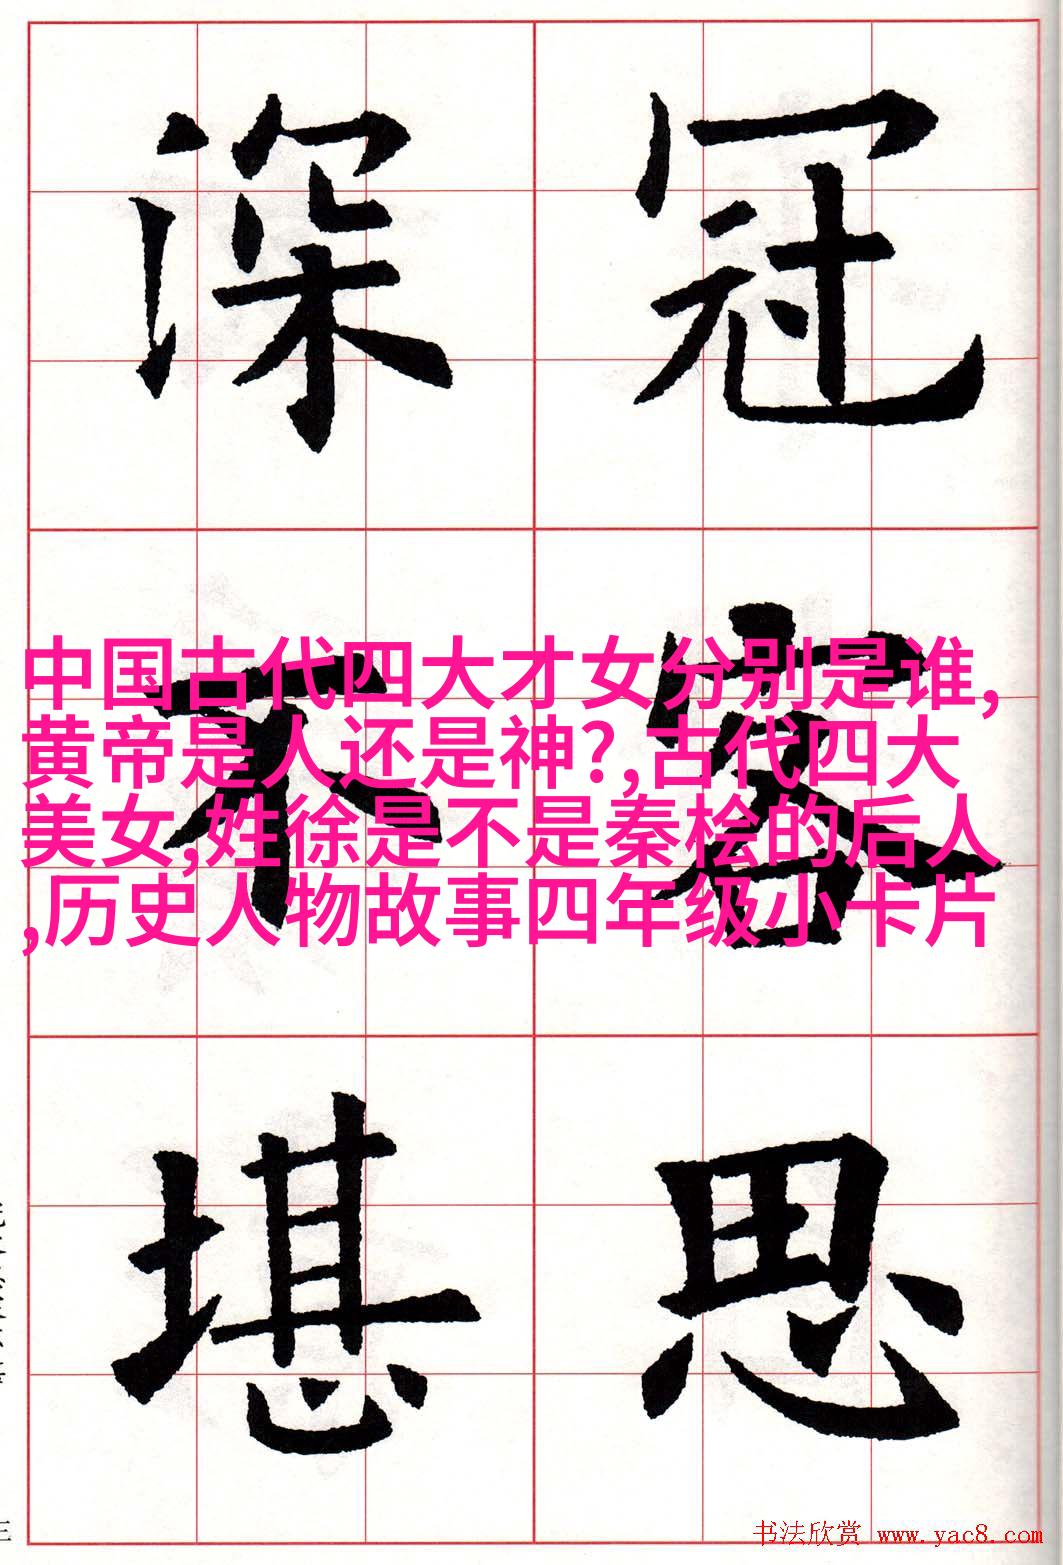 冠
容
思
深
不
堪
中国古代四大才女分别是谁,
黄帝是人还是神?,古代四大
美女,姓徐是不是秦桧的后人
,历史人物故事四年级小卡片
书法欣赏 www.yac8.com